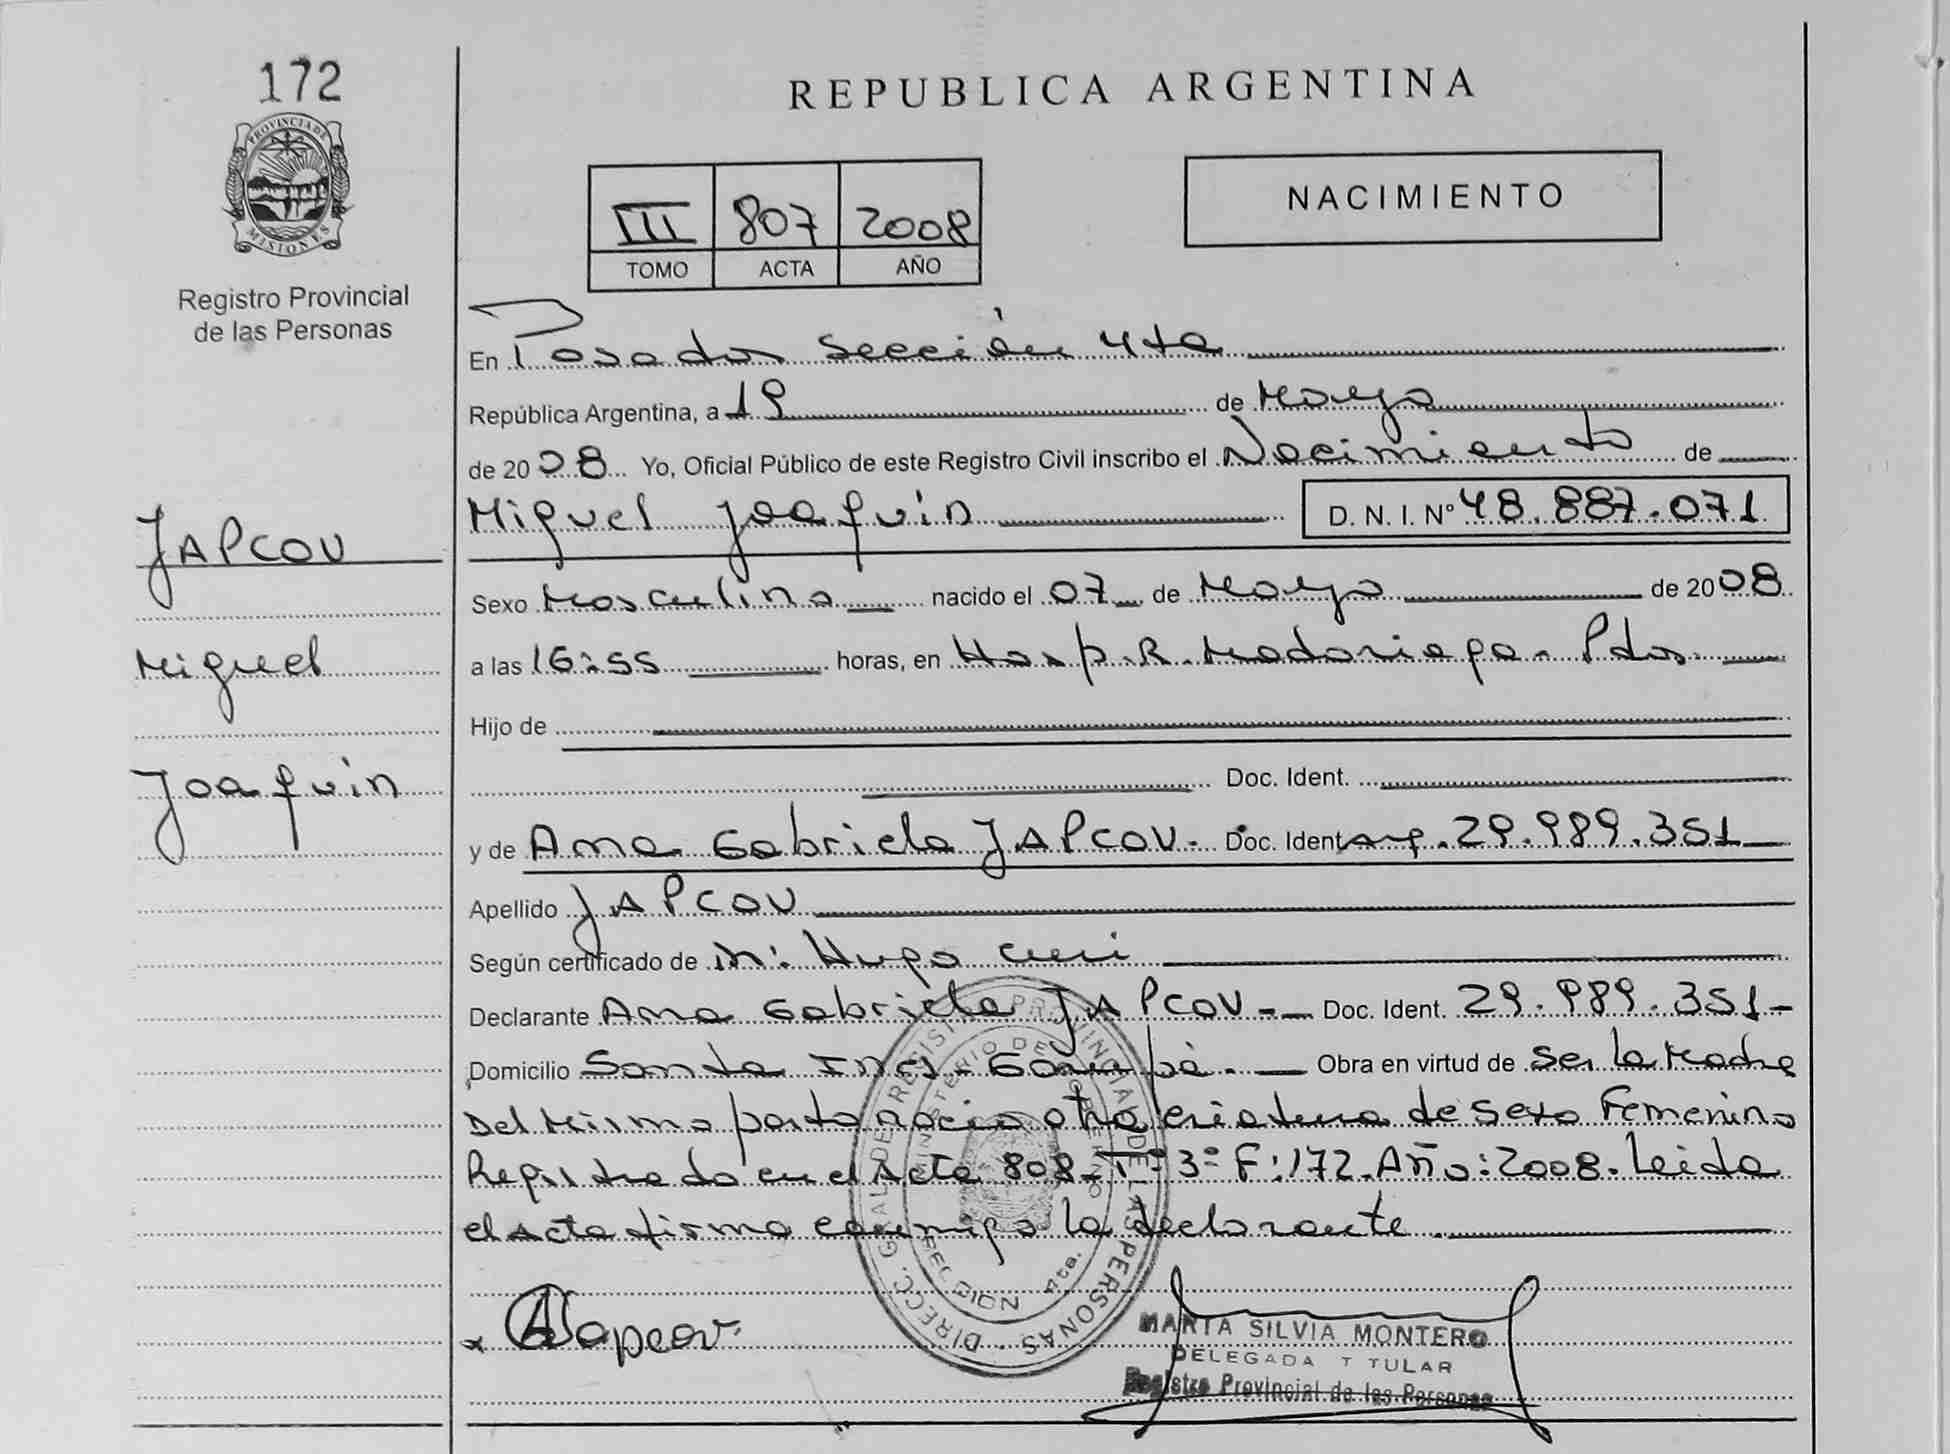 172
PROVINCIA DE
MISIONES
Registro Provincial
de las Personas
REPUBLICA ARGENTINA
III 807 2008
TOMO ACTA AÑO
NACIMIENTO
En Posadas Sección 4ta
República Argentina, a 19 de Mayo
de 2008 Yo, Oficial Público de este Registro Civil inscribo el Nacimiento de
Miguel Joaquin D. N. I. N° 48.887.071
JAPCOV
Sexo Masculino nacido el 07 de Mayo de 2008
Miguel
a las 16:55 horas, en Hosp. R. Madariaga - Pdas.
Hijo de
Joaquin
Doc. Ident.
y de Ana Gabriela JAPCOV. Doc. Ident Arg. 29.989.351
Apellido JAPCOV
Según certificado de M: Hugo
Declarante Ana Gabriela JAPCOV.- Doc. Ident. 29.989.351-
Domicilio Santa Ines - Garupá. Obra en virtud de Ser la Madre
Del Mismo parto nacio otra criatura de Sexo Femenino
Registrado en el Acta 808 - T° 3° F:172. Año: 2008. Leida
el Acta firma conmigo la declarante.
DIRECC. GRAL DE REGISTRO PROVINCIAL DE LAS PERSONAS
MINISTERIO DE GOBIERNO
SECCION 4ta.
x AJapcov
MARTA SILVIA MONTERO
DELEGADA TITULAR
Registro Provincial de las Personas